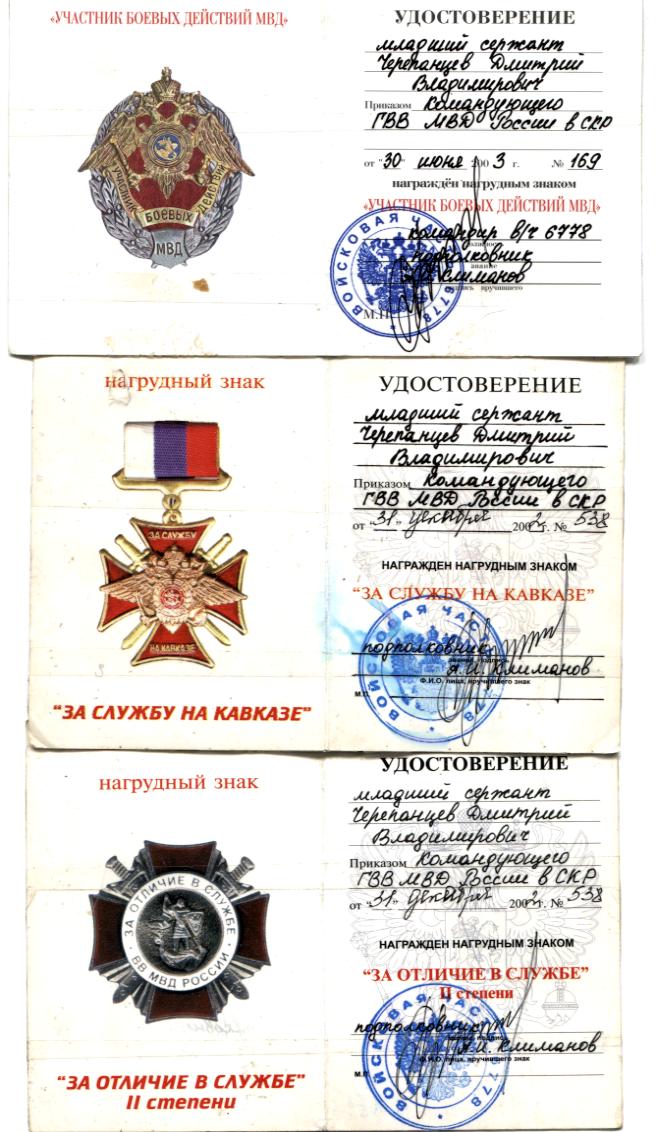 «УЧАСТНИК БОЕВЫХ ДЕЙСТВИЙ МВД»
УЧАСТНИК БОЕВЫХ ДЕЙСТВИЙ
МВД
УДОСТОВЕРЕНИЕ
младший сержант
Черепанцев Дмитрий
Владимирович
Приказом Командующего
ГВВ МВД России в СКР
от "30" июня 2003 г. № 169
награждён нагрудным знаком
«УЧАСТНИК БОЕВЫХ ДЕЙСТВИЙ МВД»
командир в/ч 6778
подполковник
звание
Климанов
подпись вручившего
М.П.
ВОЙСКОВАЯ ЧАСТЬ 6778
нагрудный знак
ЗА СЛУЖБУ
НА КАВКАЗЕ
"ЗА СЛУЖБУ НА КАВКАЗЕ"
УДОСТОВЕРЕНИЕ
младший сержант
Черепанцев Дмитрий
Владимирович
Приказом Командующего
ГВВ МВД России в СКР
от "31" декабря 2002 г. № 538
НАГРАЖДЕН НАГРУДНЫМ ЗНАКОМ
"ЗА СЛУЖБУ НА КАВКАЗЕ"
подполковник
звание, подпись
А.И. Климанов
Ф.И.О. лица, вручившего знак
М.П.
ВОЙСКОВАЯ ЧАСТЬ 6778
нагрудный знак
ЗА ОТЛИЧИЕ В СЛУЖБЕ
ВВ МВД РОССИИ
"ЗА ОТЛИЧИЕ В СЛУЖБЕ"
II степени
УДОСТОВЕРЕНИЕ
младший сержант
Черепанцев Дмитрий
Владимирович
Приказом Командующего
ГВВ МВД России в СКР
от "31" декабря 2002 г. № 538
НАГРАЖДЕН НАГРУДНЫМ ЗНАКОМ
"ЗА ОТЛИЧИЕ В СЛУЖБЕ"
II степени
подполковник
звание, подпись
А.И. Климанов
Ф.И.О. лица, вручившего знак
М.П.
ВОЙСКОВАЯ ЧАСТЬ 6778